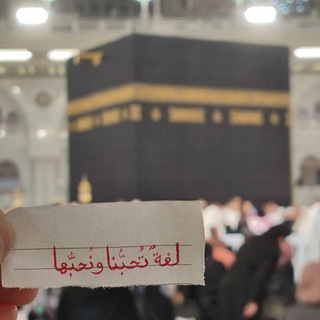 لغةٌ تُحبُّنا ونُحبُّها